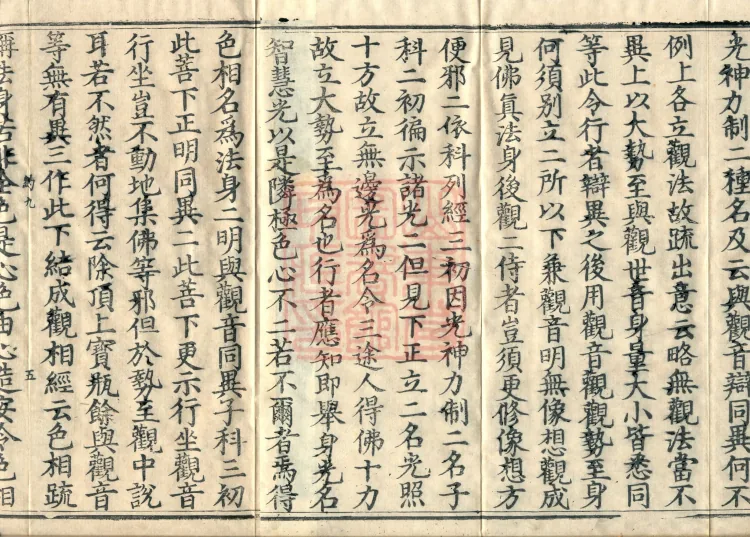 光神力制二種名及云與觀音辯同異何不
例上各立觀法故疏出意云略無觀法當不
異上以大勢至與觀世音身量大小皆悉同
等此令行者辯異之後用觀音觀觀勢至身
何須別立二所以下兼觀音明無像想觀成
見佛真法身後觀二侍者豈須更修像想方
便邪二依科列經三初因光神力制二名子
科二初徧示諸光二但見下正立二名光照
十方故立無邊光為名令三途人得佛十力
故立大勢至為名也行者應知即舉身光名
智慧光以是隣極色心不二若不爾者焉得
色相名為法身二明與觀音同異子科三初
此菩下正明同異二此菩下更示行坐觀音
行坐豈不動地集佛等邪但於勢至觀中說
耳若不然者何得云除頂上寶瓶餘與觀音
等無有異三作此下結成觀相經云色相疏
約九
五
稱法身若非全色是心色由心造安令色相